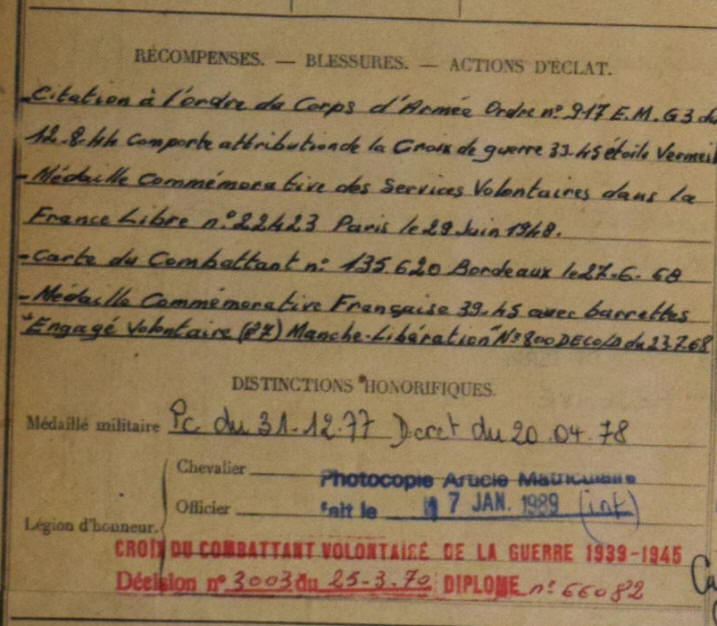 RÉCOMPENSES. — BLESSURES. — ACTIONS D'ÉCLAT.
- Citation à l'ordre du Corps d'Armée Ordre n° 917 E.M. G3 du
12.8.44 Comporte attribution de la Croix de guerre 39-45 étoile Vermeil
- Médaille Commémorative des Services Volontaires dans la
France Libre n° 22423 Paris le 29 Juin 1948.
- Carte du Combattant n° 135.620 Bordeaux le 27-6-68
- Médaille Commémorative Française 39.45 avec barrettes
"Engagé Volontaire (87) Manche-Libération" N° 800 DECO/D du 23.7.68
DISTINCTIONS HONORIFIQUES.
Médaillé militaire Pc du 31.12.77 Decret du 20.04.78
Légion d'honneur.
Chevalier
Officier
Photocopie Article Matriculaire
fait le 17 JAN. 1989 (int)
CROIX DU COMBATTANT VOLONTAIRE DE LA GUERRE 1939-1945
Décision n° 3003 du 25-3.70 DIPLOME n° 66082